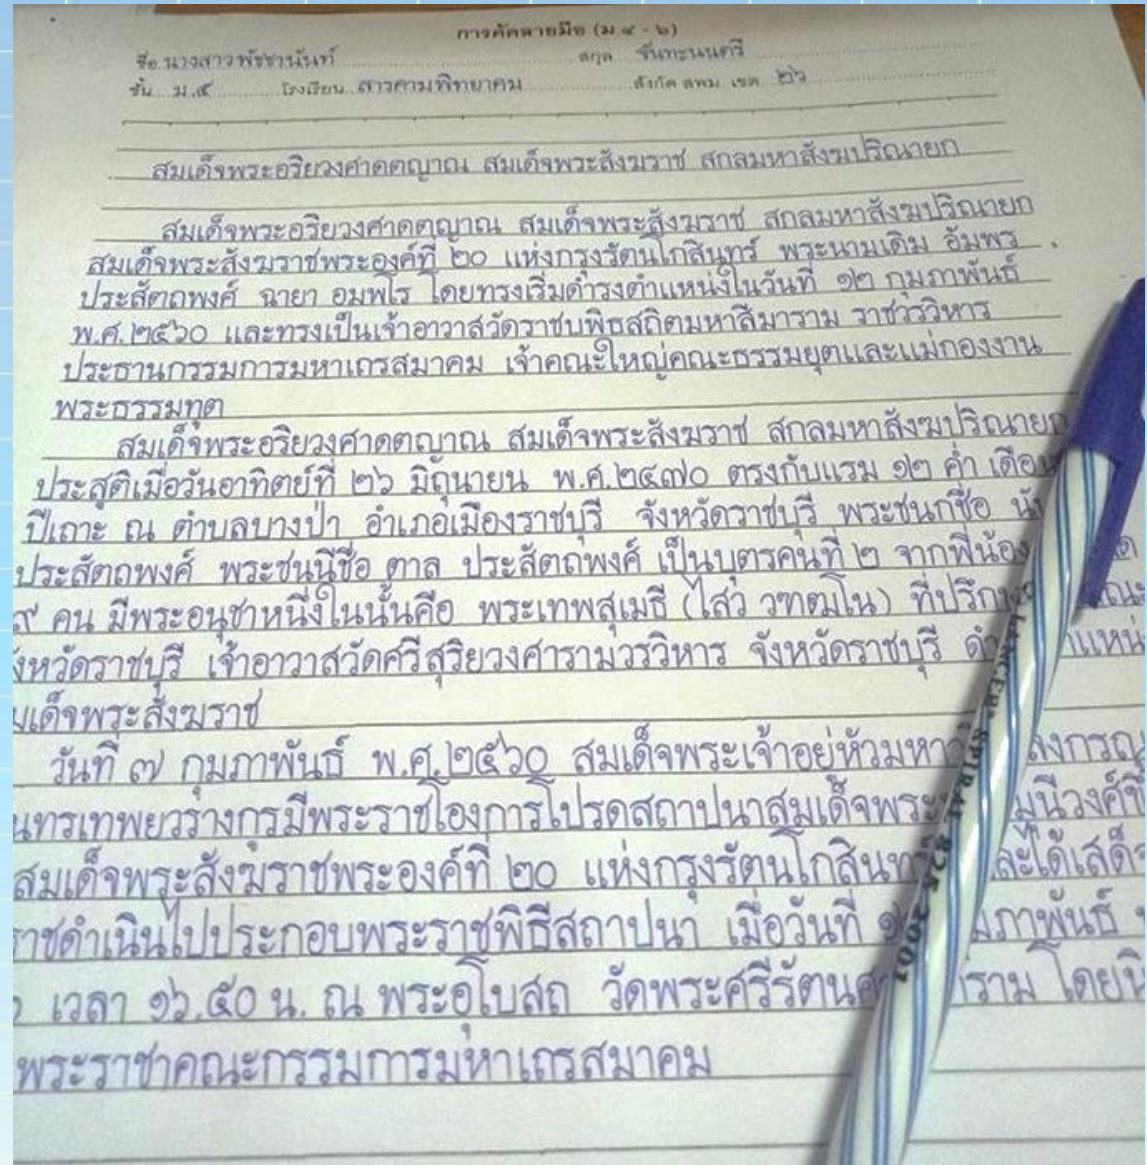 การคัดลายมือ (ม ๔ - ๖)
ชื่อ นางสาวพัชชานันท์ สกุล จันทะนนตรี
ชั้น ม.๕ โรงเรียน สารคามพิทยาคม สังกัด สพม. เขต ๒๖
สมเด็จพระอริยวงศาคตญาณ สมเด็จพระสังฆราช สกลมหาสังฆปริณายก
สมเด็จพระอริยวงศาคตญาณ สมเด็จพระสังฆราช สกลมหาสังฆปริณายก
สมเด็จพระสังฆราชพระองค์ที่ ๒๐ แห่งกรุงรัตนโกสินทร์ พระนามเดิม อัมพร
ประสัตถพงศ์ ฉายา อมพโร โดยทรงเริ่มดำรงตำแหน่งในวันที่ ๑๒ กุมภาพันธ์
พ.ศ.๒๕๖๐ และทรงเป็นเจ้าอาวาสวัดราชบพิธสถิตมหาสีมาราม ราชวรวิหาร
ประธานกรรมการมหาเถรสมาคม เจ้าคณะใหญ่คณะธรรมยุตและแม่กองงาน
พระธรรมทูต
สมเด็จพระอริยวงศาคตญาณ สมเด็จพระสังฆราช สกลมหาสังฆปริณายก
ประสูติเมื่อวันอาทิตย์ที่ ๒๖ มิถุนายน พ.ศ.๒๔๗๐ ตรงกับแรม ๑๒ ค่ำ
ปีเถาะ ณ ตำบลบางป่า อำเภอเมืองราชบุรี จังหวัดราชบุรี พระชนกชื่อ
ประสัตถพงศ์ พระชนนีชื่อ ตาล ประสัตถพงศ์ เป็นบุตรคนที่ ๒ จากพี่น้อง
๙ คน มีพระอนุชาหนึ่งในนั้นคือ พระเทพสุเมธี (ไสว วฑฒโน)
จังหวัดราชบุรี เจ้าอาวาสวัดศรีสุริยวงศารามวรวิหาร จังหวัดราชบุรี
มเด็จพระสังฆราช
วันที่ ๗ กุมภาพันธ์ พ.ศ.๒๕๖๐ สมเด็จพระเจ้าอยู่หัวมหา
นทรเทพยวรางกูรมีพระราชโองการโปรดสถาปนาสมเด็จพระ มุนีวงศ์
สมเด็จพระสังฆราชพระองค์ที่ ๒๐ แห่งกรุงรัตนโกสินทร ละได้เสด็จ
ราชดำเนินไปประกอบพระราชพิธีสถาปนา เมื่อวันที่
เวลา ๑๖.๕๐ น. ณ พระอุโบสถ วัดพระศรีรัตน าราม โดย
พระราชาคณะกรรมการมหาเถรสมาคม